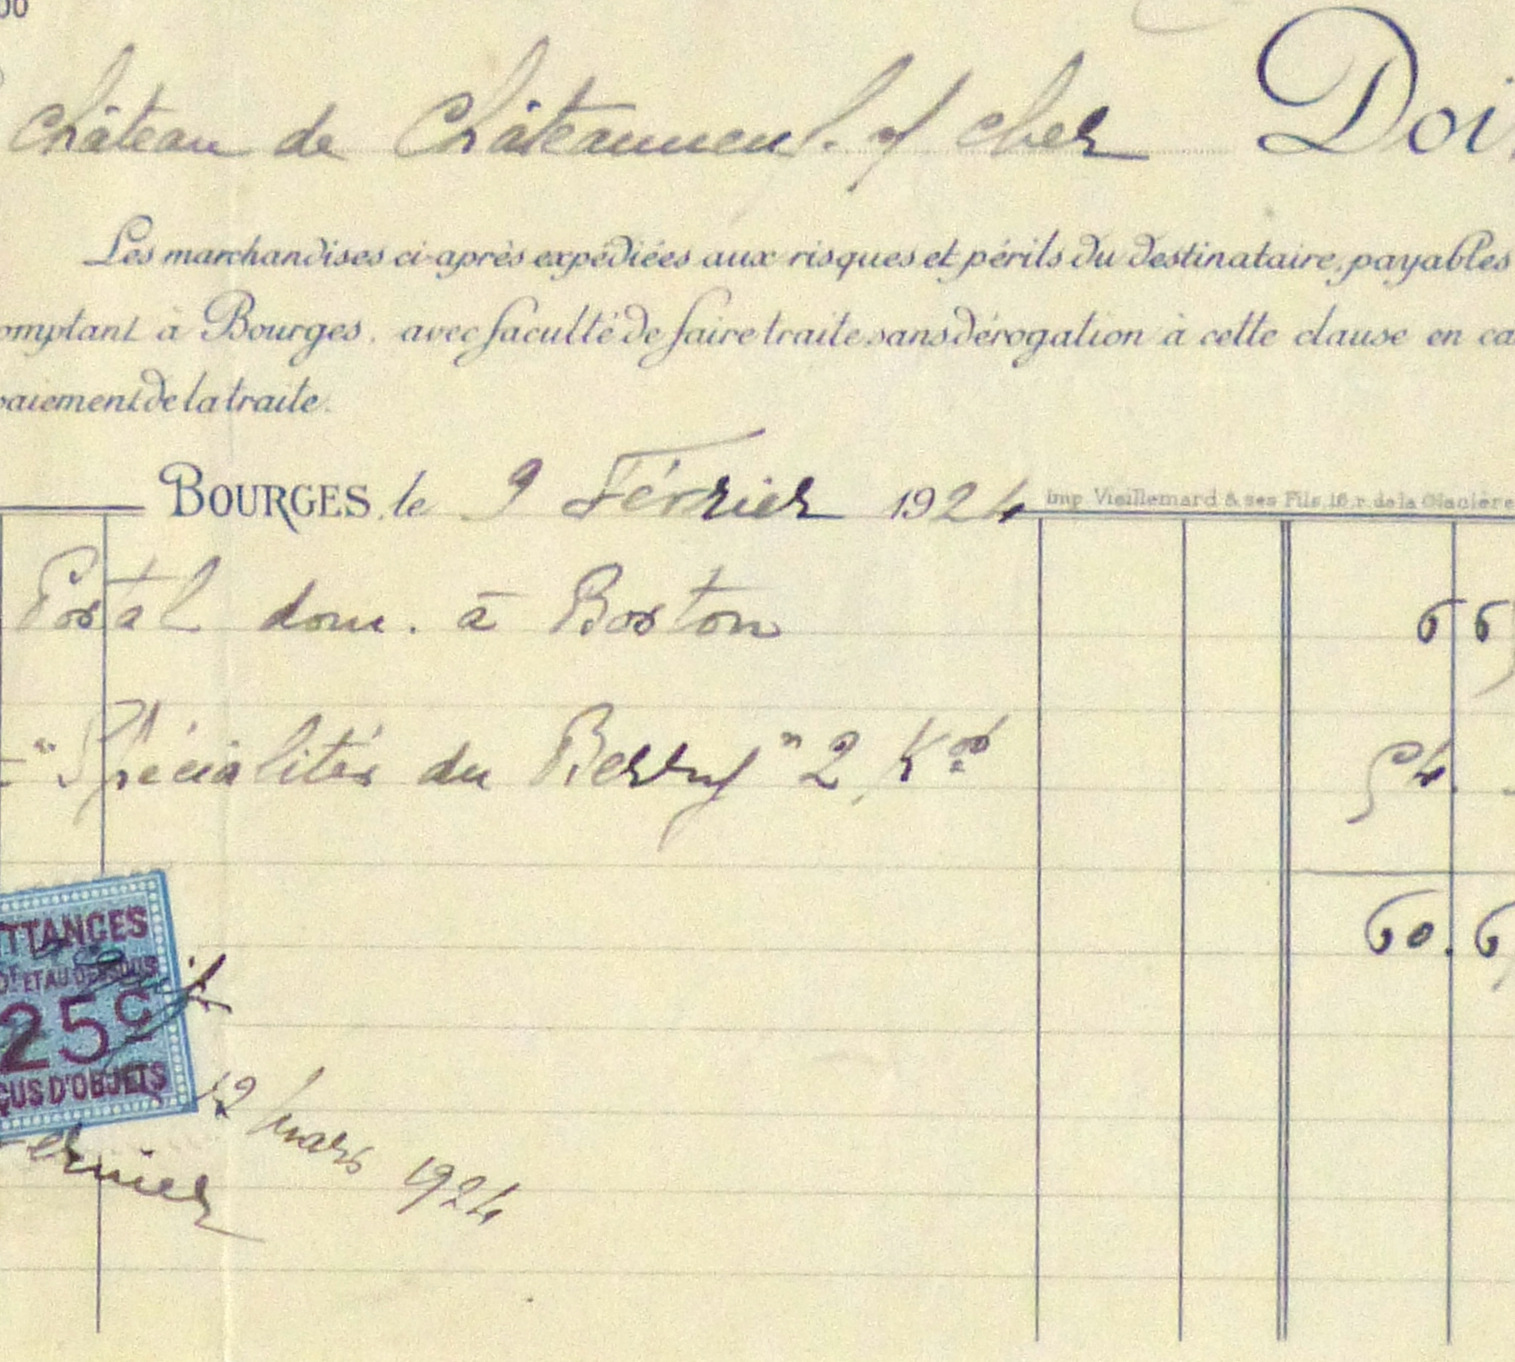 00
Château de Châteauneuf s/ cher Doi
Les marchandises ci-après expédiées aux risques et périls du destinataire, payables
omptant à Bourges, avec faculté de faire traite, sans dérogation à cette clause en ca
paiement de la traite.
BOURGES, le 9 Février 1924 Imp. Vieillemard & ses Fils, 16, r. de la Glacière
Postal dom. à Boston 6 65
"Spécialités du Berry" 2 Kos 54.
60. 6
TTANCES
ET AU DESSOUS
25c
ÇUS D'OBJETS
12 mars 1924